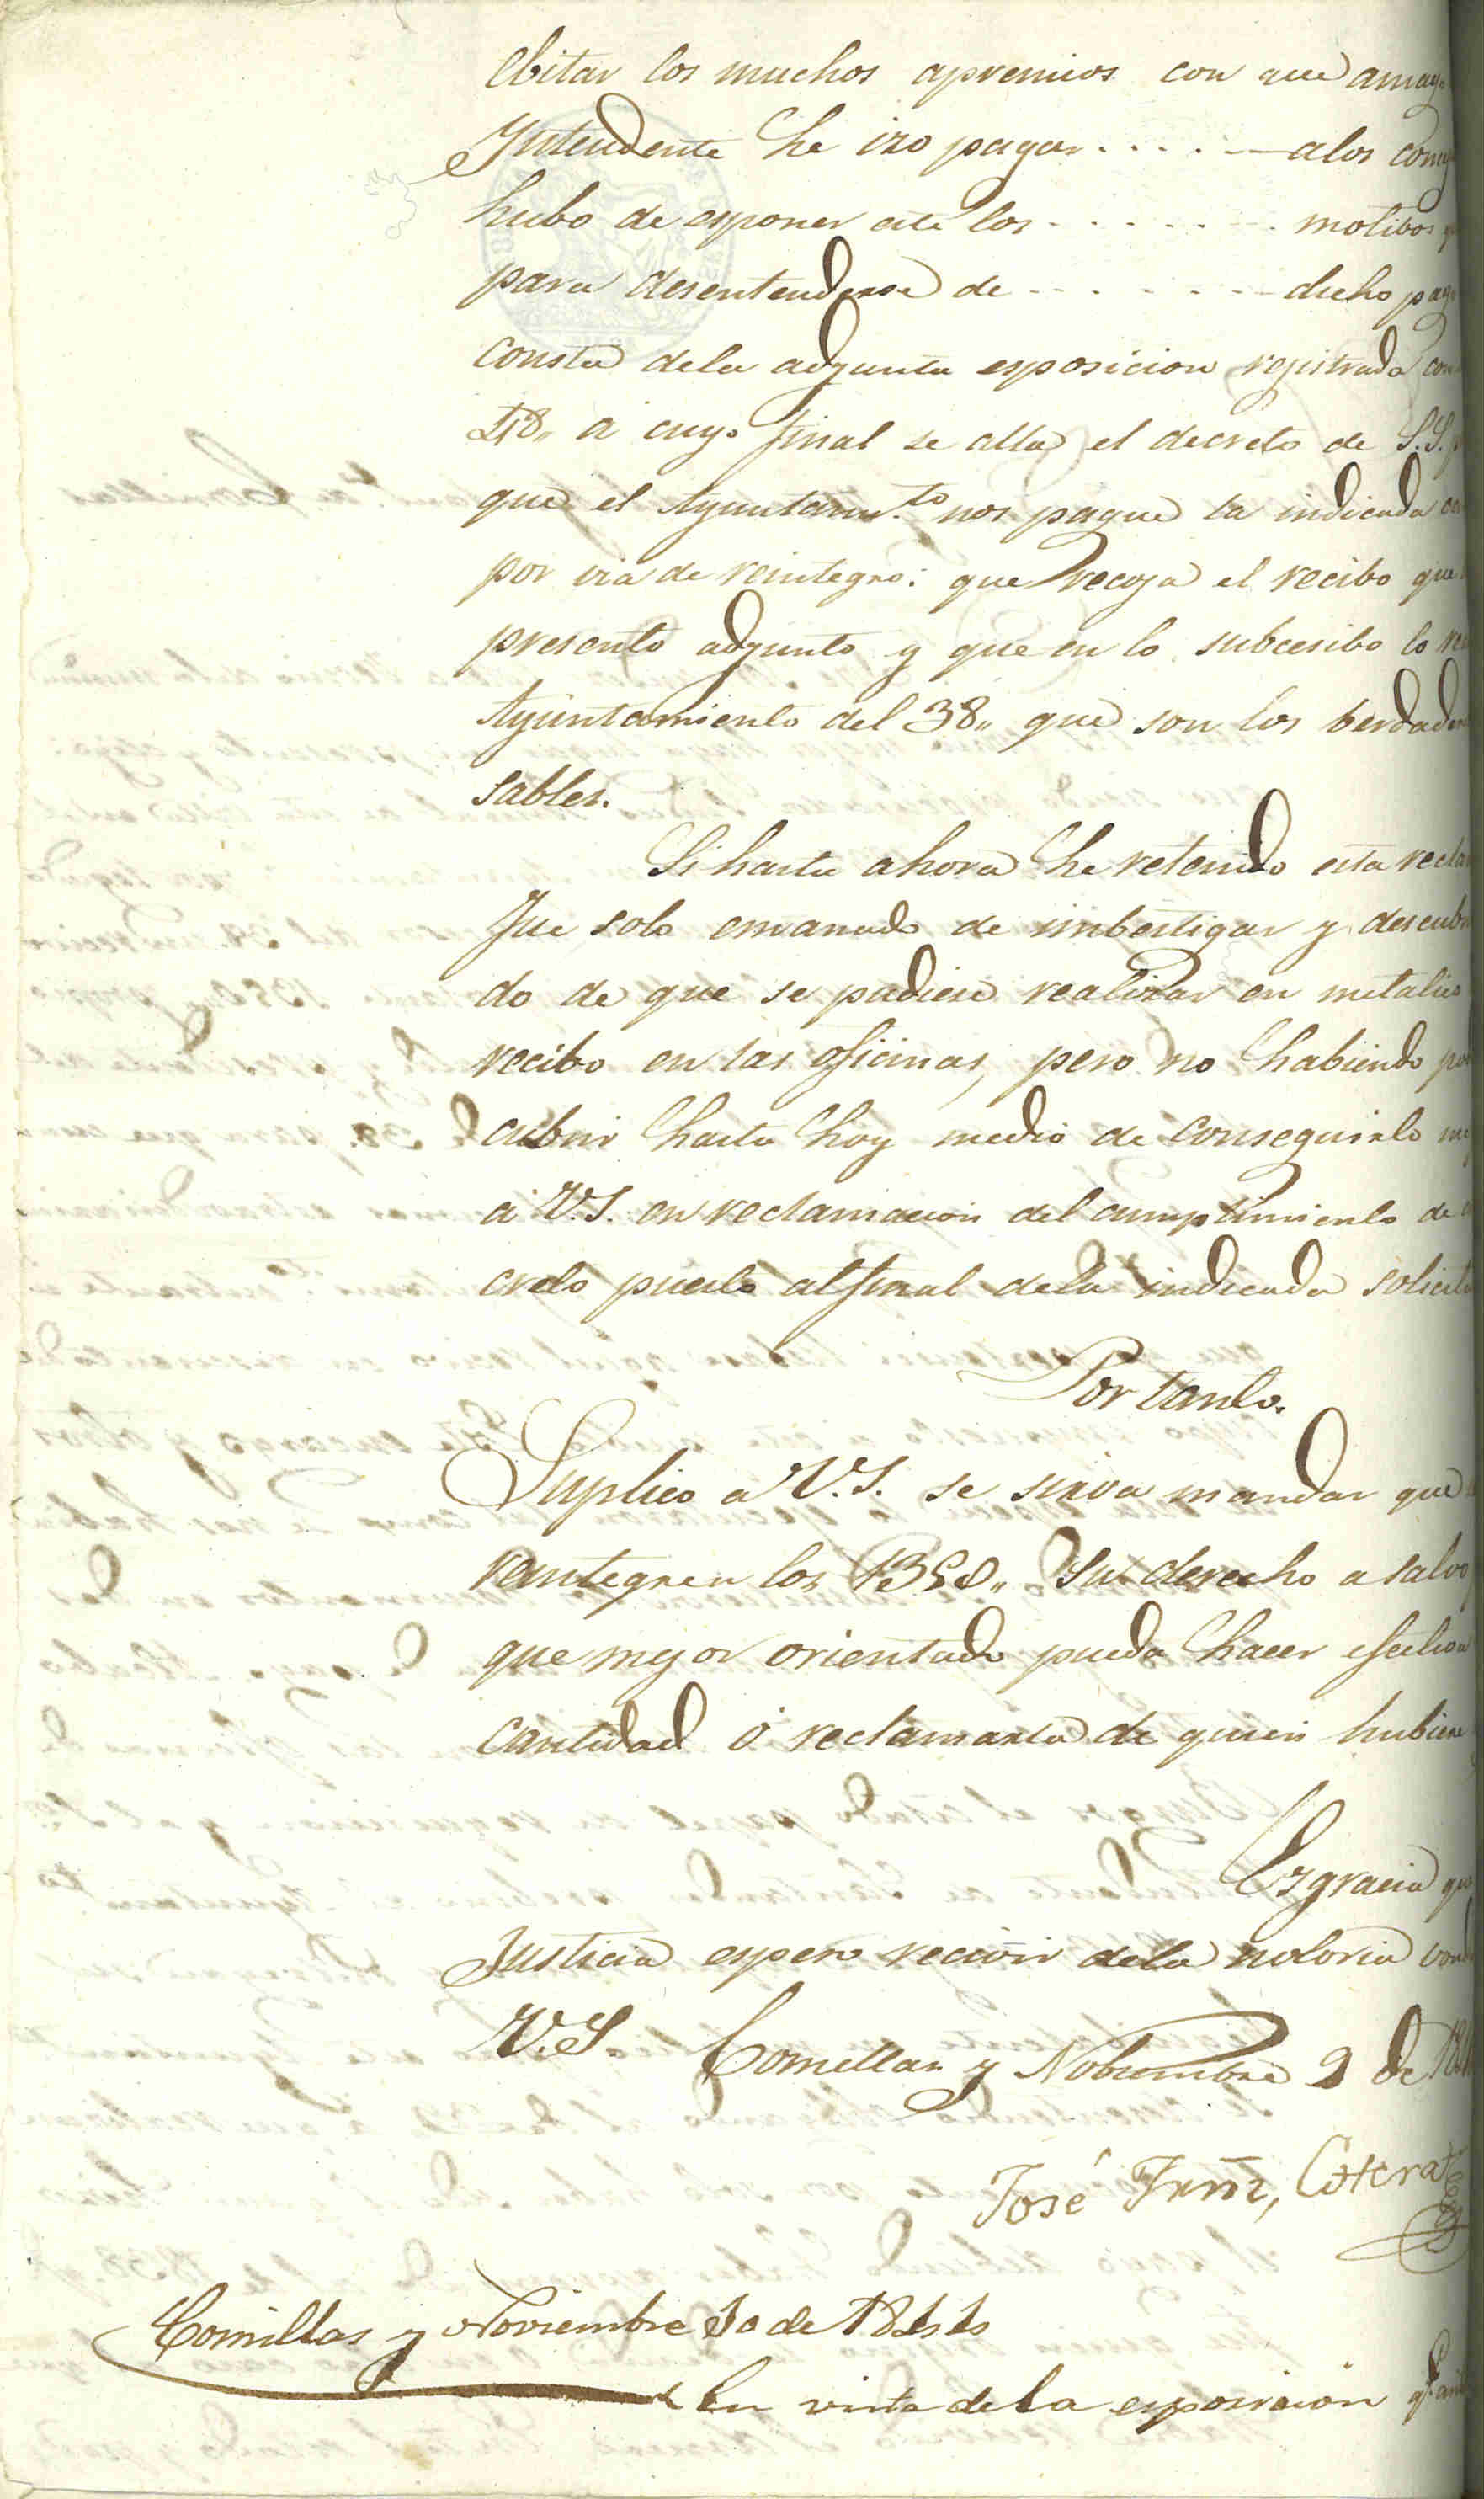 Ebitar los muchos apremios con que amag
Yntendente he izo pagar . . . . alos
hubo de esponer ате los . . . . . . . motibos
para desentenderse de . . . . . . . dicho pag
consta dela adjunta esposicion rejistrada con
48,, á cuyo final se alla el decreto de S.S.
que el Ayuntam.to nos pague la indicada
por via de reintegro: que recoja el recibo que
presento adjunto y que en lo subcesibo lo
Ayuntamiento del 38,, que son los berdader
sables.
Si hasta ahora he retenido esta recla
fue solo emanado de imbestigar y descubr
do de que se pudiese realizar en metalico
recibo en las oficinas, pero no habiendo po
cubrir hasta hoy medio de conseguirlo
á V.S. en reclamacion del cumplimiento de
creto puesto al final dela indicada solicit
Por tanto.
Suplico a V.S. se sirva mandar que
reintegren los su derecho a salvo
que mejor orientado pueda hacer efectiva
cantidad ó reclamarla de quien hubiere
Es gracia que
Justicia espero recivir dela notoria
V.S. Comillas y Nobiembre 9 de
José Frnz, Cotera
Comillas y Noviembre 10 de 1844
En vista de la esposicion